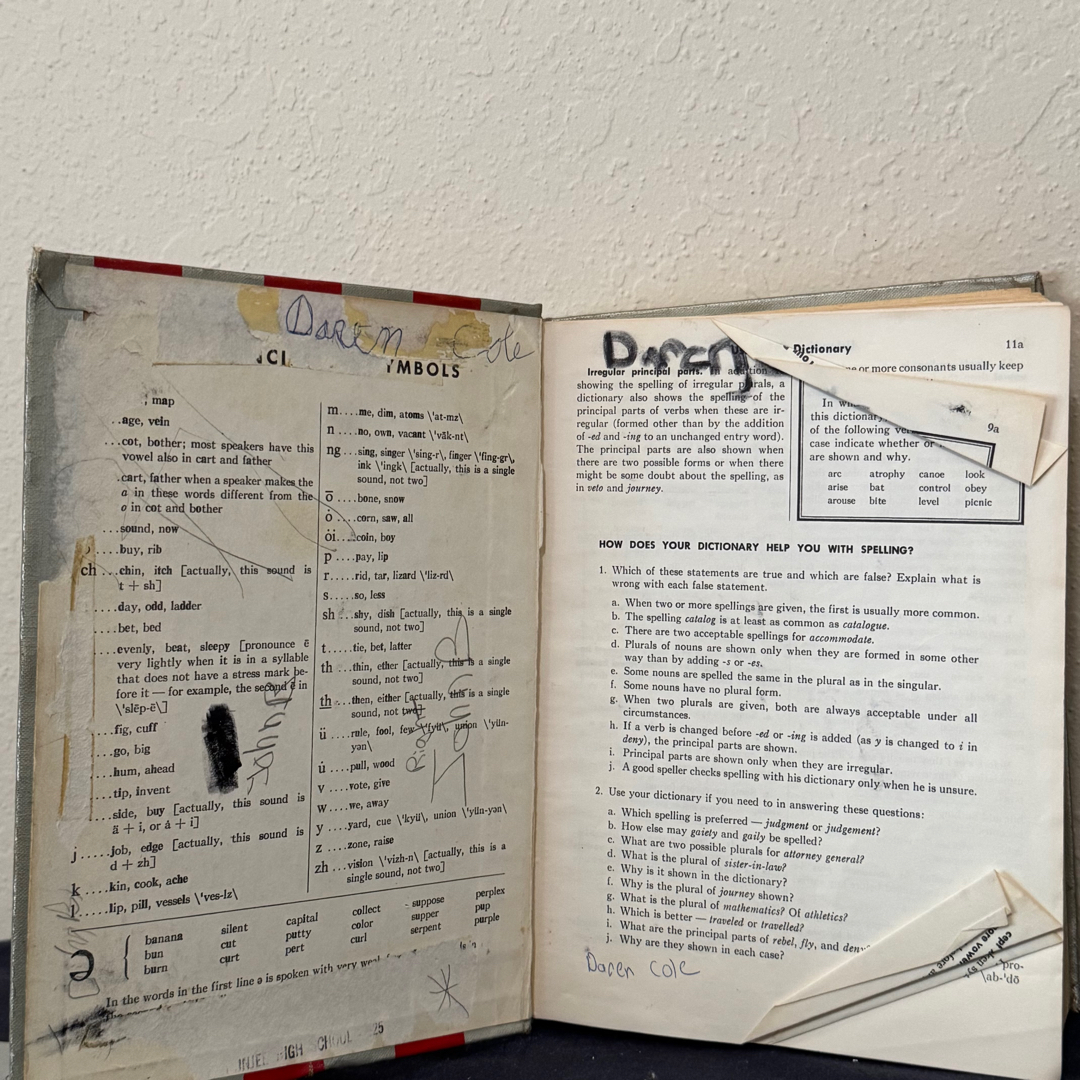 Daren Cole
YMBOLS
map
..age, vein
...cot, bother; most speakers have this
vowel also in cart and father
.cart, father when a speaker makes the
a in these words different from the
o in cot and bother
...sound, now
....buy, rib
ch ...chin, itch [actually, this sound is
t + sh]
....day, odd, ladder
....bet, bed
....evenly, beat, sleepy [pronounce ē
very lightly when it is in a syllable
that does not have a stress mark be-
fore it — for example, the second ē in
\'slēp-ē\]
....fig, cuff
....go, big
....hum, ahead
....tip, invent
....side, buy [actually, this sound is
ä + i, or à + i]
j .....job, edge [actually, this sound is
d + zh]
k ....kin, cook, ache
l ....lip, pill, vessels \'ves-lz\
m ....me, dim, atoms \'at-mz\
n ....no, own, vacant \'vāk-nt\
ng ...sing, singer \'sing-r\, finger \'fing-gr\,
ink \'ingk\ [actually, this is a single
sound, not two]
ō ....bone, snow
ȯ ....corn, saw, all
ȯi ...coin, boy
p ....pay, lip
r .....rid, tar, lizard \'liz-rd\
s .....so, less
sh ...shy, dish [actually, this is a single
sound, not two]
t .....tie, bet, latter
th ...thin, ether [actually, this is a single
sound, not two]
th ...then, either [actually, this is a single
sound, not two]
ü ....rule, few \'fyü\, union \'yün-
yən\
u̇ ....pull, wood
v ....vote, give
w ....we, away
y ....yard, cue \'kyü\, union \'yün-yən\
z ....zone, raise
zh ...vision \'vizh-n\ [actually, this is a
single sound, not two]
John
ə
banana silent capital collect suppose perplex
bun cut putty color supper pup
burn curt pert curl serpent purple
In the words in the first line ə is spoken with very
HIGH SCHOOL 25
Daren
Dictionary 11a
Irregular principal parts. In addition to
showing the spelling of irregular plurals, a
dictionary also shows the spelling of the
principal parts of verbs when these are ir-
regular (formed other than by the addition
of -ed and -ing to an unchanged entry word).
The principal parts are also shown when
there are two possible forms or when there
might be some doubt about the spelling, as
in veto and journey.
or more consonants usually keep
9a
In
this dictionary
of the following
case indicate whether or
are shown and why.
arc atrophy canoe look
arise bat control obey
arouse bite level picnic
HOW DOES YOUR DICTIONARY HELP YOU WITH SPELLING?
1. Which of these statements are true and which are false? Explain what is
wrong with each false statement.
a. When two or more spellings are given, the first is usually more common.
b. The spelling catalog is at least as common as catalogue.
c. There are two acceptable spellings for accommodate.
d. Plurals of nouns are shown only when they are formed in some other
way than by adding -s or -es.
e. Some nouns are spelled the same in the plural as in the singular.
f. Some nouns have no plural form.
g. When two plurals are given, both are always acceptable under all
circumstances.
h. If a verb is changed before -ed or -ing is added (as y is changed to i in
deny), the principal parts are shown.
i. Principal parts are shown only when they are irregular.
j. A good speller checks spelling with his dictionary only when he is unsure.
2. Use your dictionary if you need to in answering these questions:
a. Which spelling is preferred — judgment or judgement?
b. How else may gaiety and gaily be spelled?
c. What are two possible plurals for attorney general?
d. What is the plural of sister-in-law?
e. Why is it shown in the dictionary?
f. Why is the plural of journey shown?
g. What is the plural of mathematics? Of athletics?
h. Which is better — traveled or travelled?
i. What are the principal parts of rebel, fly, and deny
j. Why are they shown in each case?
Daren Cole
pro-
\ab-'dō